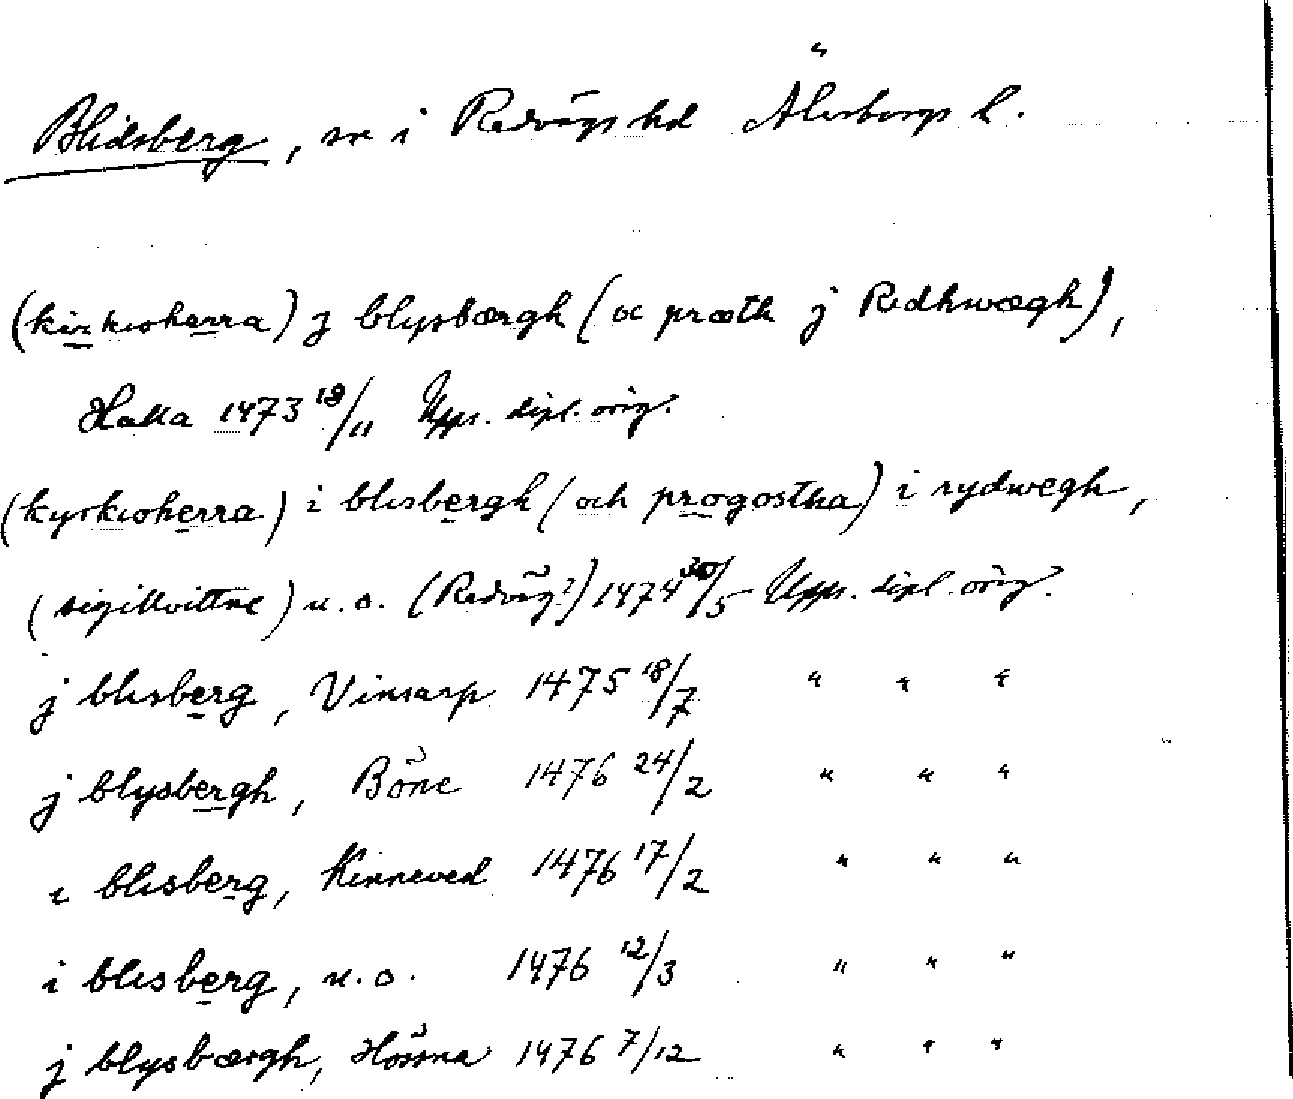 Blidsberg, sn i Redvägs hd Älvsborgs l.
(kirkioherra) j blysbærgh (oc præth j Redhwægh),
Halla 1473 18/11 Upps. dipl. orig.
(kyrkioherra) i blisbergh (och progostha) i rydwegh,
(sigillvittne) u.o. (Redväg?) 1474 30/5 Upps. dipl. orig.
j blisberg, Vinsarp 1475 18/7 " " "
j blysbergh, Böne 1476 24/2 " " "
i blisberg, Kinneved 1476 17/2 " " "
i blisberg, u.o. 1476 12/3 " " "
j blysbærgh, Hössna 1476 7/12 " " "